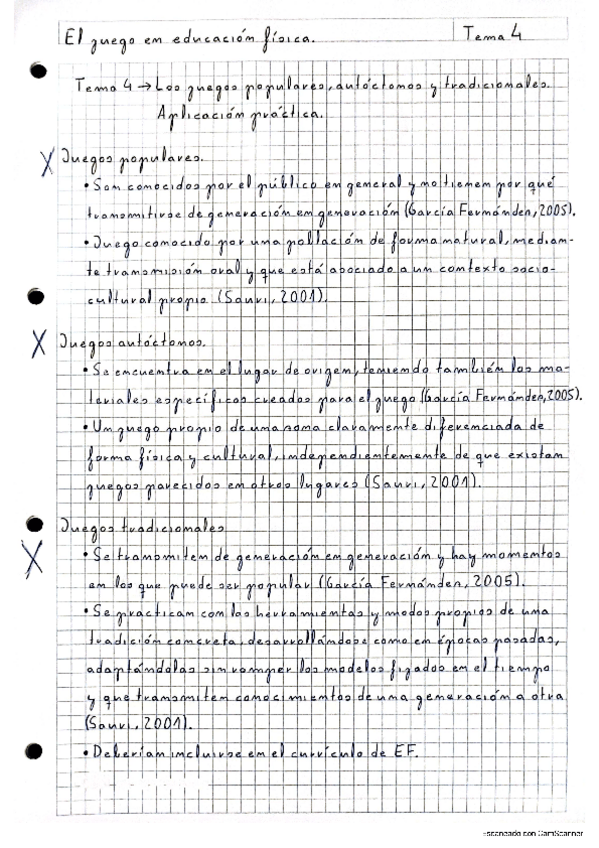 El juego en educación física.
Tema 4
Tema 4 → Los juegos populares, autóctonos y tradicionales.
Aplicación práctica.
X Juegos populares.
• Son conocidos por el público en general y no tienen por qué
transmitirse de generación en generación (García Fernánden, 2005).
• Juego conocido por una población de forma natural, median-
te transmisión oral y que está asociado a un contexto socio-
cultural propio (Sauri, 2001).
X Juegos autóctonos.
• Se encuentra en el lugar de origen, teniendo también los ma-
teriales específicos creados para el juego (García Fernánden, 2005).
• Un juego propio de una zona claramente diferenciada de
forma física y cultural, independientemente de que existan
juegos parecidos en otros lugares (Sauri, 2001).
Juegos tradicionales
X • Se transmiten de generación en generación y hay momentos
en los que puede ser popular (García Fernánden, 2005).
• Se practican con las herramientas y modos propios de una
tradición concreta, desarrollándose como en épocas pasadas,
adaptándolas sin romper los modelos fijados en el tiempo
y que transmiten conocimientos de una generación a otra
(Sauri, 2001).
• Deberían incluirse en el currículo de EF.
Escaneado con CamScanner